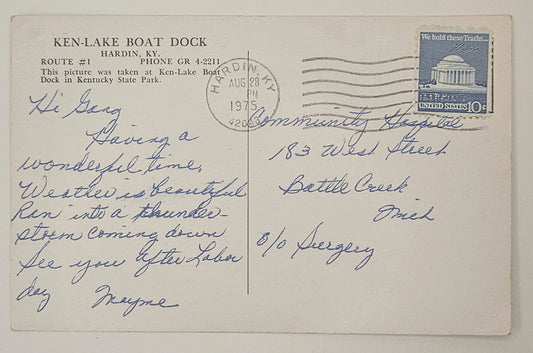 KEN-LAKE BOAT DOCK
HARDIN, KY.
ROUTE #1 PHONE GR 4-2211
This picture was taken at Ken-Lake Boat
Dock in Kentucky State Park.
Hi Gang
Having a
wonderful time,
Weather is beautiful
Ran into a thunder-
storm coming down
See you after Labor
day Mayme
HARDIN, KY
AUG 28
PM
1975
We hold these Truths...
UNITED STATES 10c
Community Hospital
183 West Street
Battle Creek
Mich
c/o Surgery